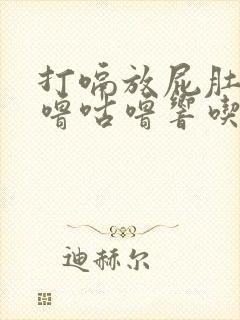 打嗝放屁肚
噜咕噜响喫
迪赫尔